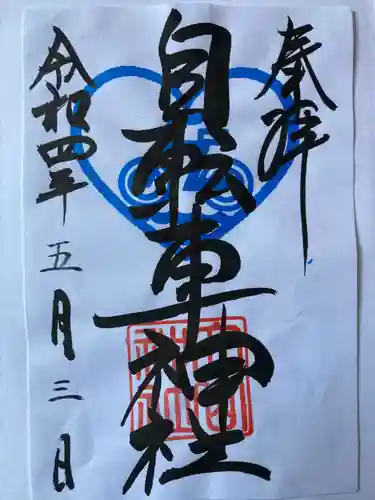 奉拝
自転車神社
令和四年五月三日